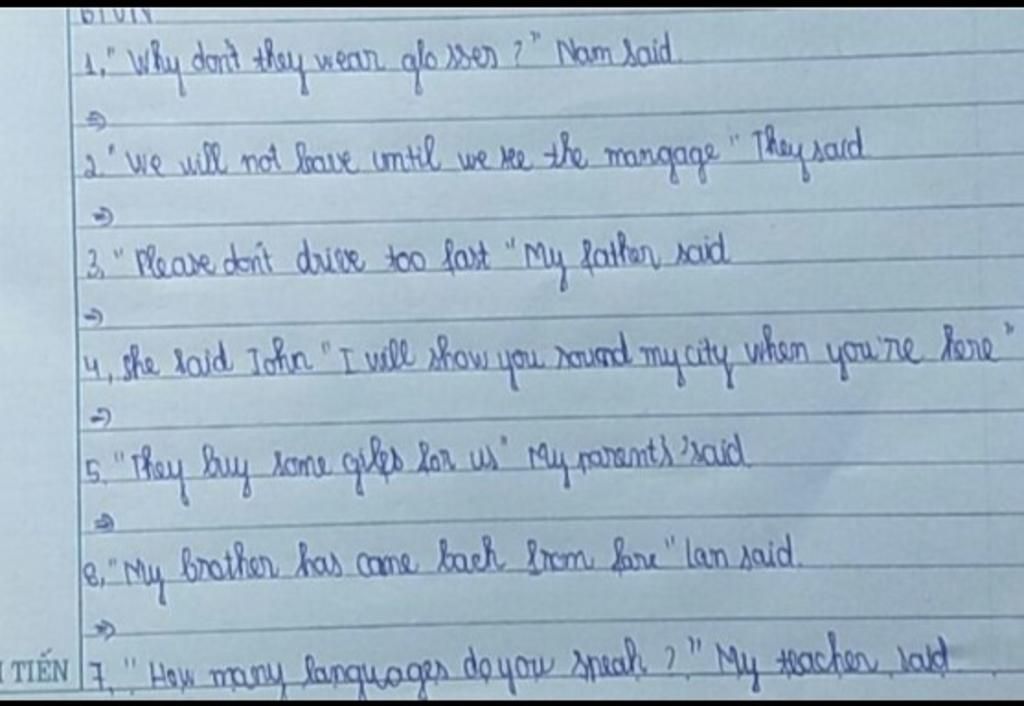 1, " Why don't they wear glasses ? " Nam said.
⇒
2 " We will not leave until we see the mangage " They said
⇒
3, " Please don't drive too fast " My father said
⇒
4, she said John " I will show you round my city when you're here "
⇒
5, " They buy some gifts for us " My parents' said
⇒
6, " My brother has come back from" Lan said.
⇒
TIẾN 7, " How many languages do you speak ? " My teacher said